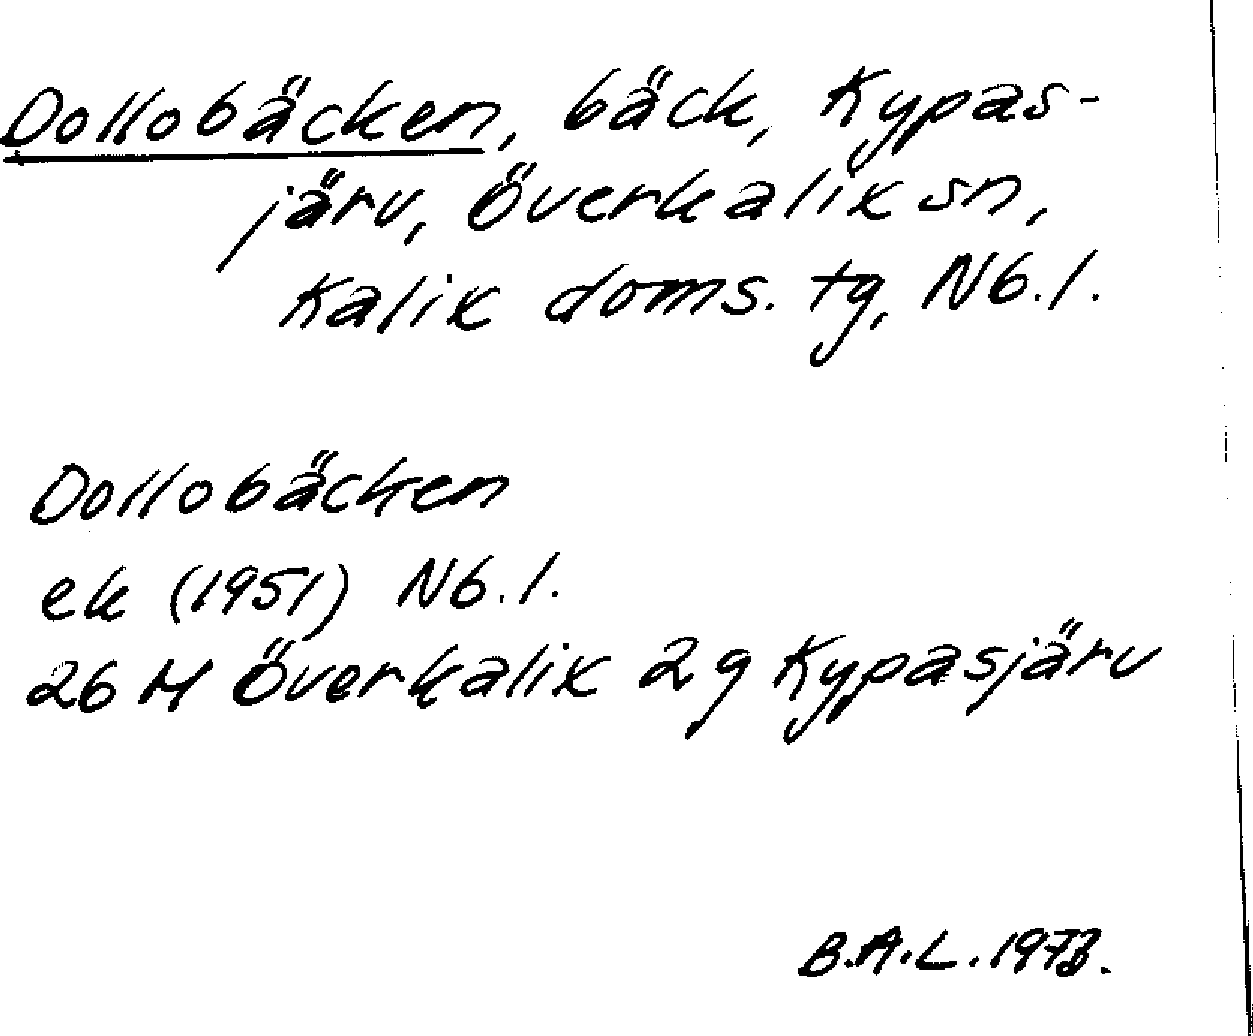 Dollobäcken, bäck, Kypas-
järv, Överkalix sn,
Kalix doms. tg, Nb. l.
Dollobäcken
ek (1951) Nb. l.
26 M Överkalix 2 g Kypasjärv
B.A.L. 1973.